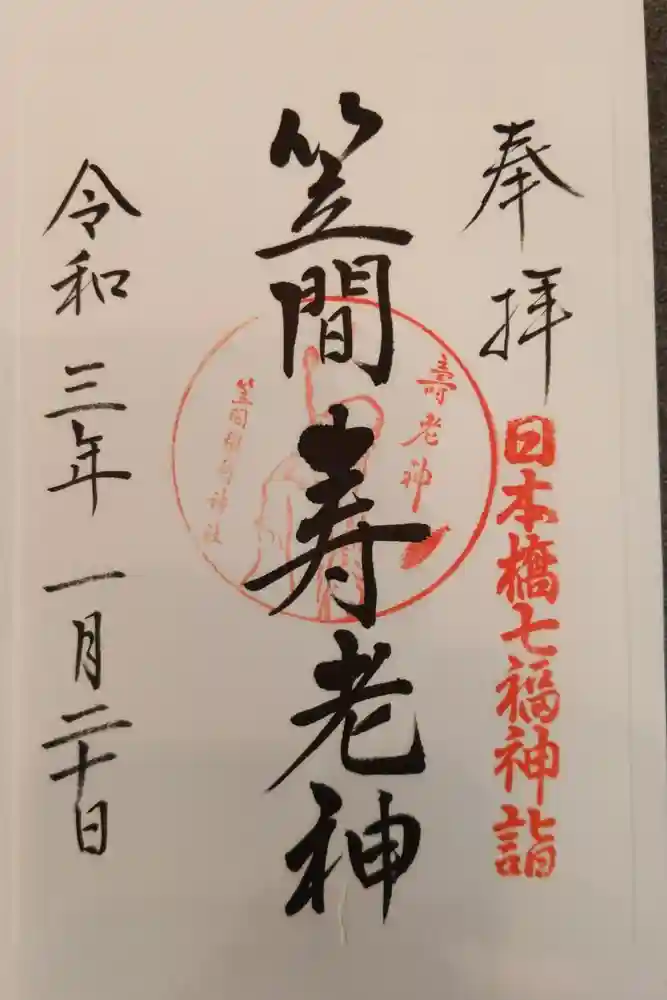 奉拝
日本橋七福神詣
笠間寿老神
壽老神
笠間稲荷神社
令和三年一月二十日